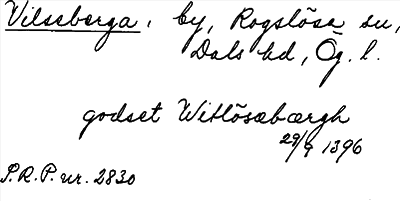 Vilseberga, by, Rogslösa sn,
Dals hd, Ög. l.
godset Witlösabærgh
29/9 1396
S.R.P. nr. 2830